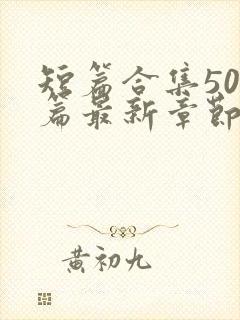 短篇合集50
篇最新章节
黄初九